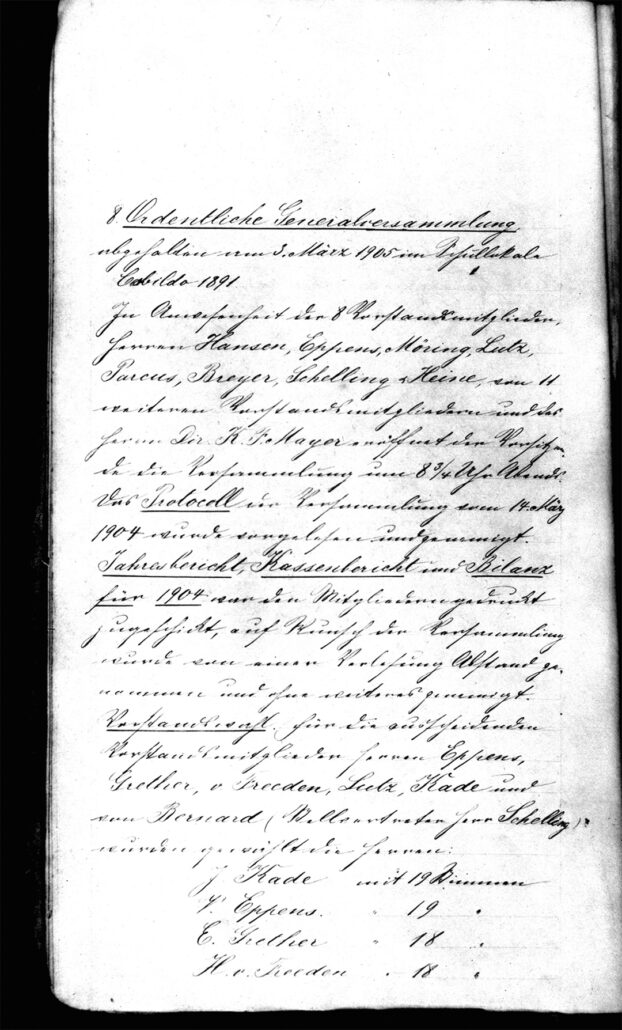 8 Ordentliche Generalversammlung
abgehalten am 3. März 1905 im Schullokale
Cabildo 1891
In Anwesenheit der 8 Vorstandsmitglieder,
Herren Hansen, Eppens, Möring, Lutz,
Parcus, Breyer, Schelling & Heine, von 11
weiteren Vorstandsmitgliedern und des
Herrn Dir. K. P. Mayer eröffnet der Vorsitzen-
de die Versammlung um 8 3/4 Uhr Abends.
Das Protocoll der Versammlung vom 14. März
1904 wurde vorgelesen und genemigt.
Jahresbericht, Kassenbericht und Bilanz
für 1904 war den Mitgliedern gedruckt
zugeschickt, auf Wunsch der Versammlung
wurde von einer Verlesung Abstand ge-
nommen und ohne weiteres genemigt.
Vorstandswahl, für die ausscheidenden
Vorstandsmitglieder Herren Eppens,
Grether, v Freeden, Lutz, Kade und
von Bernard (Stellvertreter Herr Schelling)
wurden gewählt die Herren:
J Kade mit 19 Stimmen
Eppens. " 19 "
E. Grether " 18 "
H. v. Freeden " 18 "